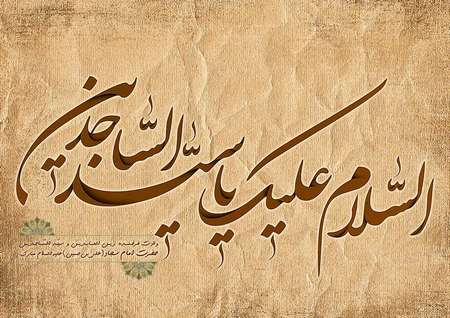 السَّلام عليك يا سيّد السَّاجدين
ولادت فرخنده زین العابدین و سید الساجدین
حضرت امام سجاد (علی بن حسین) علیه السلام مبارک